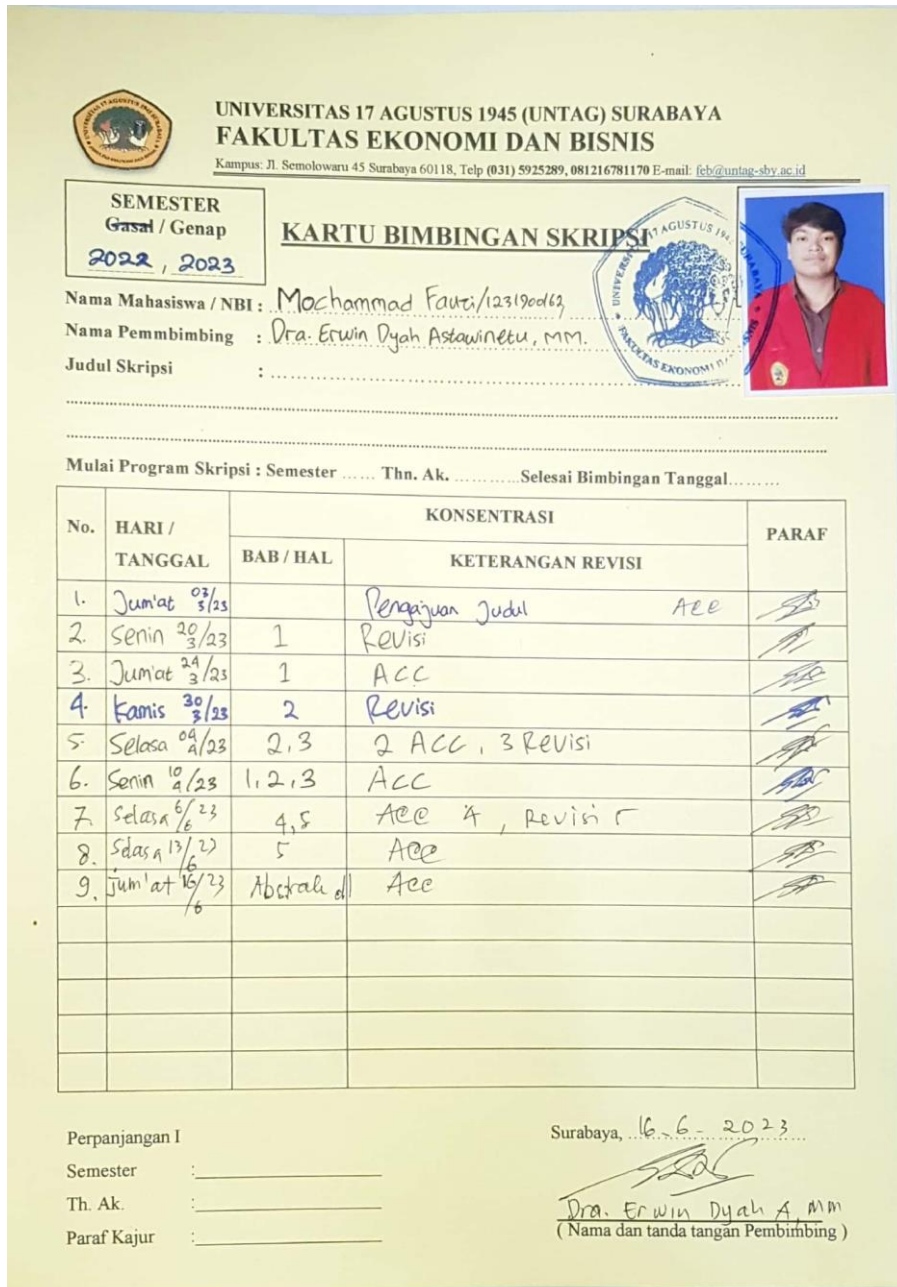 UNIVERSITAS 17 AGUSTUS 1945 (UNTAG) SURABAYA
FAKULTAS EKONOMI DAN BISNIS
Kampus: Jl. Semolowaru 45 Surabaya 60118, Telp (031) 5925289, 081216781170 E-mail: feb@untag-sby.ac.id
SEMESTER
Gasal / Genap
2022, 2023
KARTU BIMBINGAN SKRIPSI
Nama Mahasiswa / NBI : Mochammad Fauzi/
Nama Pemmbimbing : Dra. Erwin Dyah Astawinetu, MM.
Judul Skripsi :
Mulai Program Skripsi : Semester ...... Thn. Ak. ............Selesai Bimbingan Tanggal.........
No. HARI / TANGGAL KONSENTRASI PARAF
BAB / HAL KETERANGAN REVISI
1. Jum'at 03/3/23 Pengajuan Judul Acc
2. Senin 20/3/23 1 Revisi
3. Jum'at 24/3/23 1 ACC
4. Kamis 30/3/23 2 Revisi
5. Selasa 04/4/23 2,3 2 ACC, 3 Revisi
6. Senin 10/4/23 1,2,3 ACC
7. Selasa 6/6 23 4,5 Acc 4, Revisi 5
8. Selasa 13/6/23 5 Acc
9. Jum'at 16/6/23 Acc
Perpanjangan I
Semester :
Th. Ak. :
Paraf Kajur :
Surabaya, 16-6-2023
Dra. Erwin Dyah A, MM
( Nama dan tanda tangan Pembimbing )